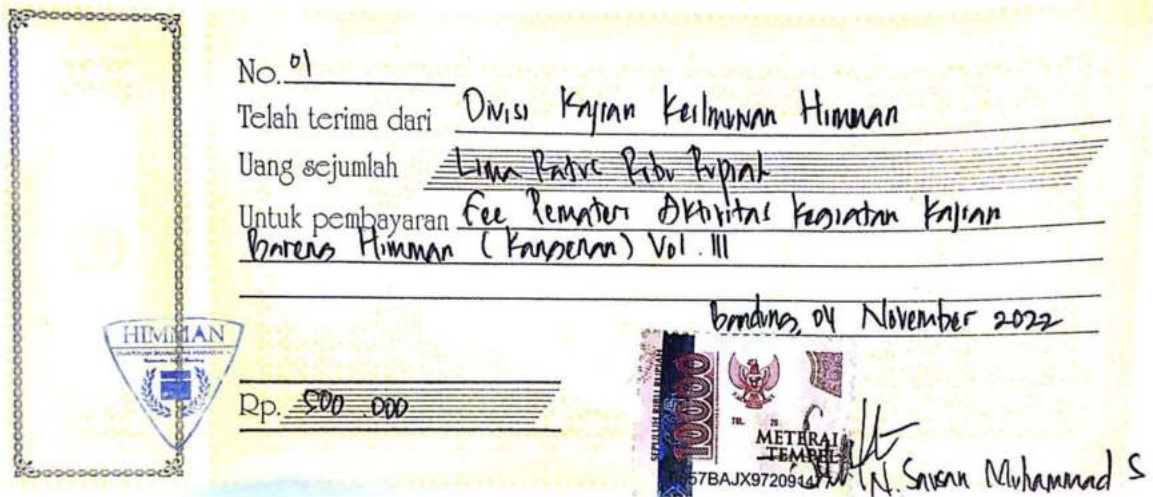 No. 01
Telah terima dari Divisi Kajian Keilmuan Himman
Uang sejumlah Lima Ratus Ribu Rupiah
Untuk pembayaran Fee Pemateri Aktivitas Kegiatan Kajian
Bareng Himman (Kangenan) Vol. III
Bandung, 04 November 2022
HIMMAN
Rp. 500.000
SEPULUH RIBU RUPIAH
10000
TGL. 20
METERAI
TEMPEL
N. Sausan Muhammad S